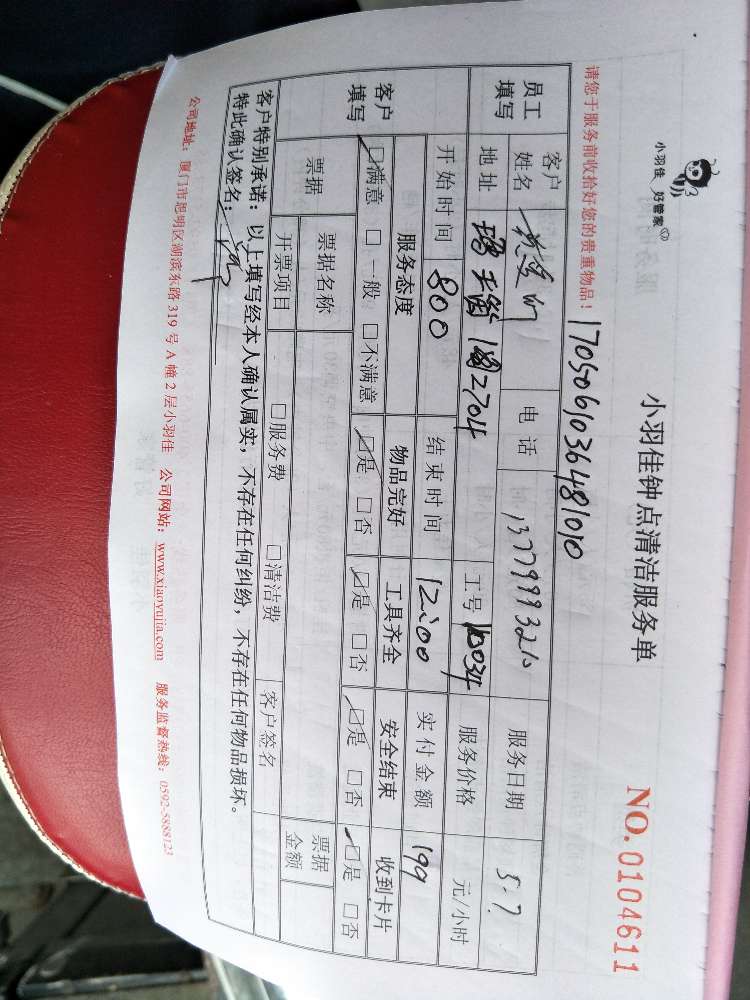 小羽佳 好管家
小羽佳钟点清洁服务单
NO. 0104611
请您于服务前收拾好您的贵重物品！
17050610364481010
员工填写 客户姓名 电话 服务日期 5.7
地址 工号 服务价格 元/小时
开始时间 800 结束时间 12:00 实付金额 199
客户填写 服务态度 物品完好 工具齐全 安全结束 收到卡片
☑满意 □一般 □不满意 ☑是 □否 ☑是 □否 ☑是 □否 ☑是 □否
票据 票据名称 票据金额
开票项目 □服务费 □清洁费 客户签名
客户特别承诺：以上填写经本人确认属实，不存在任何纠纷，不存在任何物品损坏。
特此确认签名：
公司地址：厦门市思明区湖滨东路 319 号 A 幢 2 层小羽佳 公司网站：www.xiaoyujia.com 服务监督热线：0592-5888123